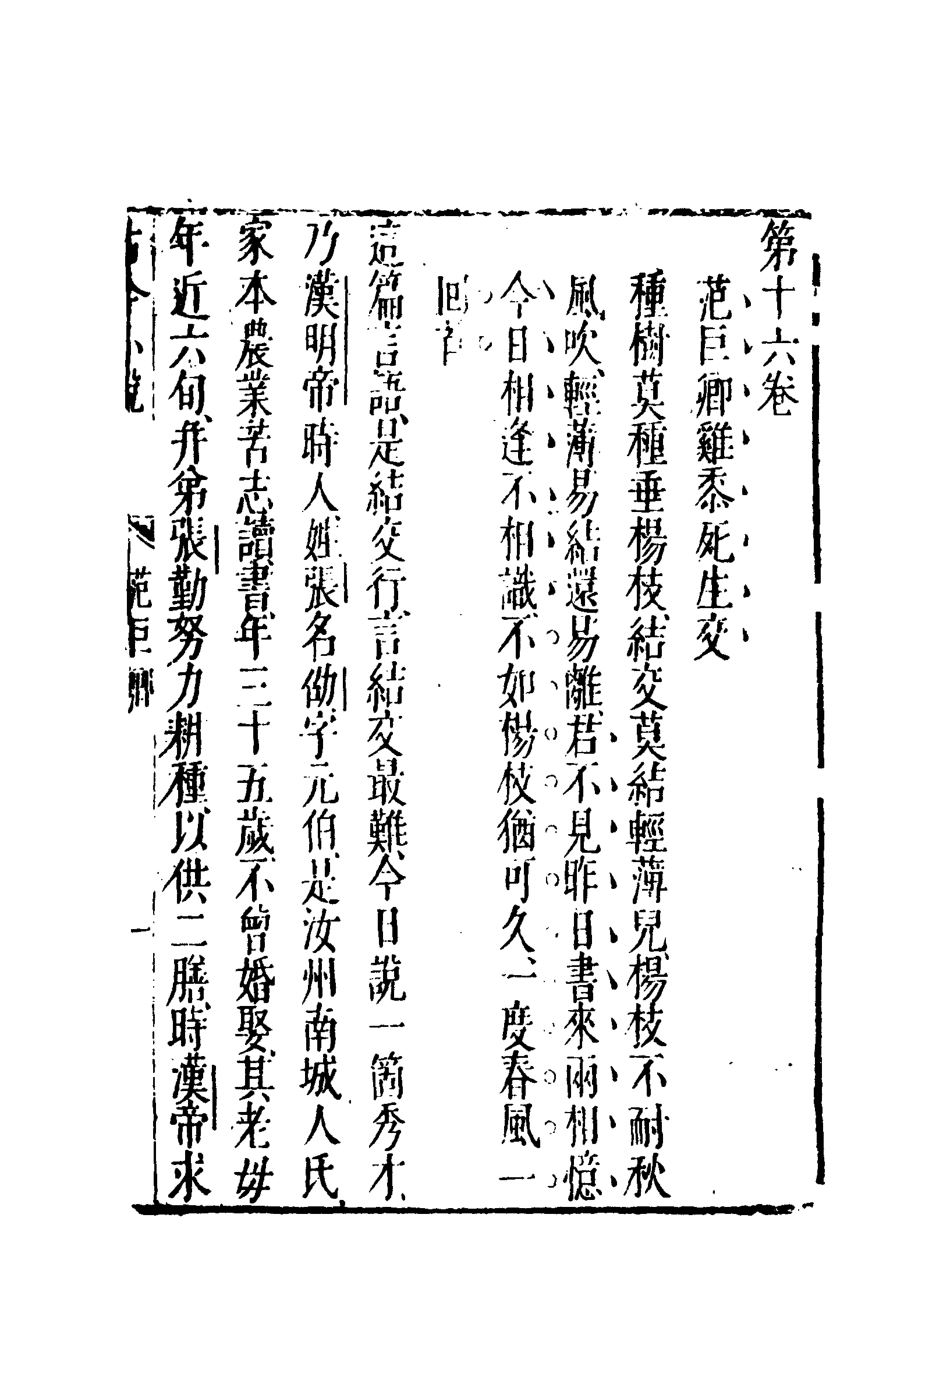 第十六卷
范巨卿雞黍死生交
種樹莫種垂楊枝結交莫結輕薄兒楊枝不耐秋
風吹輕薄易結還易離君不見昨日書來兩相憶
今日相逢不相識不如楊枝猶可久一度春風一
回首
這篇言語是結交行言結交最難今日說一箇秀才
乃漢明帝時人姓張名劭字元伯是汝州南城人氏
家本農業苦志讀書年三十五歲不曾婚娶其老母
年近六旬并弟張勤努力耕種以供二膳時漢帝求
古今小說 范巨卿 一